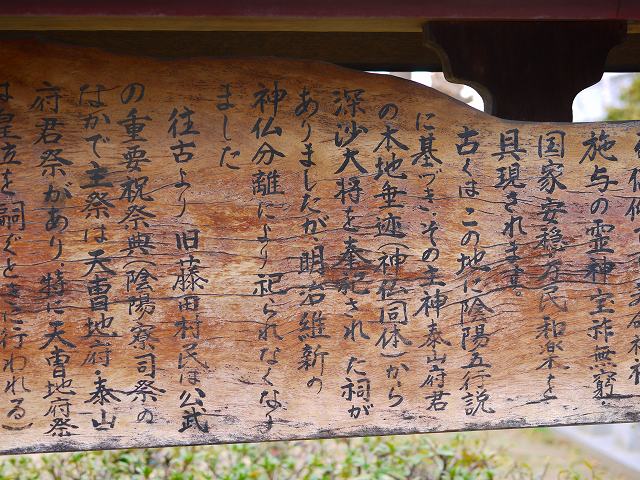 施与の霊神宝祚無窮・
国家安穏万民和楽を
具現されます。
古くはこの地に陰陽五行説
に基づき、その主神泰山府君
の本地垂迹(神仏同体)から
深沙大将を奉祀された祠が
ありましたが明治維新の
神仏分離により祀られなくなり
ました
往古より旧藤田村民は公武
の重要祝祭典(陰陽寮司祭の
なかで主祭は天曹地府・泰山
府君祭があり特に天曹地府祭
は皇位を嗣ぐときに行われる)